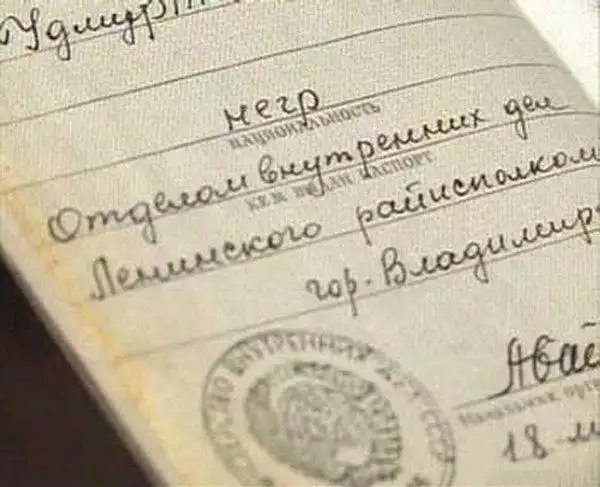 Удмурт
негр
НАЦИОНАЛЬНОСТЬ
Отделом внутренних дел
КЕМ ВЫДАН ПАСПОРТ
Ленинского райисполком
гор. Владимир
Начальник орг
18